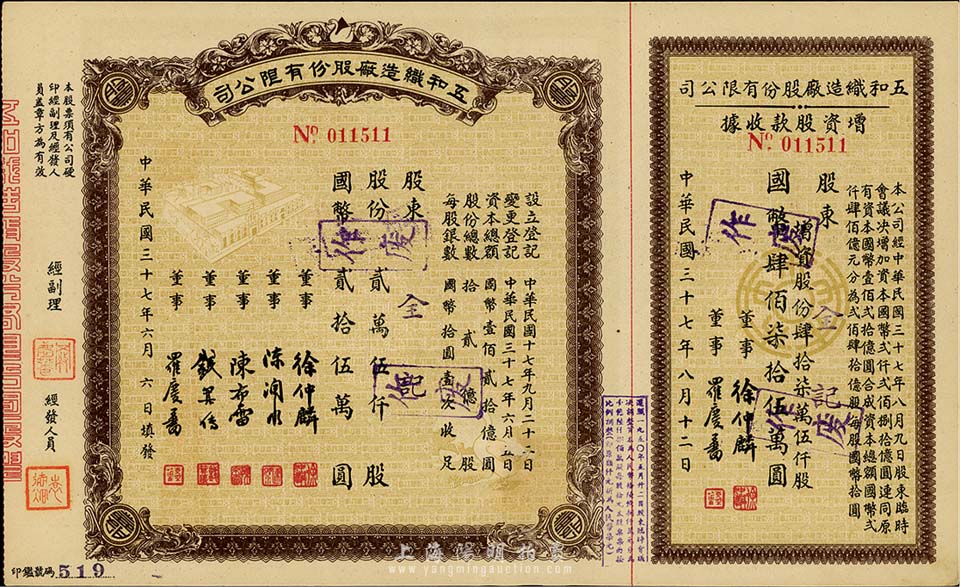 五和織造廠股份有限公司
Nº 011511
設立登記 中華民國十七年九月二十二日
變更登記 中華民國三十七年六月五日
資本總額 國幣壹佰貳拾億圓
股份總數 拾貳億股
每股銀數 國幣拾圓壹次收足
股東 全記
股份貳萬伍仟股
國幣貳拾伍萬圓
董事 徐仲麟
董事
董事 陳布雷
董事
董事 羅慶蕃
中華民國三十七年六月六日填發
作廢
作廢
本股票須有公司硬
印經副理及經發人
員蓋章方為有效
經副理
經發人員
印鑑號碼 519
五和織造廠股份有限公司
增資股款收據
Nº 011511
本公司經中華民國三十七年八月九日股東臨時
會議决增加資本國幣貳仟貳佰捌拾億圓連同原
有資本國幣壹佰貳拾億圓合成資本總額國幣貳
仟肆佰億元分為貳佰肆拾億股每股國幣拾圓
股東 全記
增資股份肆拾柒萬伍仟股
國幣肆佰柒拾伍萬圓
董事 徐仲麟
董事 羅慶蕃
中華民國三十七年八月十二日
作廢
作廢
上海陽明拍賣
www.yangmingauction.com